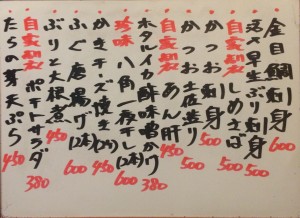 金目鯛刺身 600
活〆早生ぶり刺身
自家製 しめさば 500
かつお刺身 500
かつお土佐造り 500
自家製 あん肝
ホタルイカ酢味噌かけ 380
珍味 八角一夜干し(2本) 600
かきチーズ焼き(2ケ) 450
ふぐ唐揚げ(2本) 600
ぶりと大根煮 450
自家製 ポテトサラダ 380
たらの芽天ぷら 450